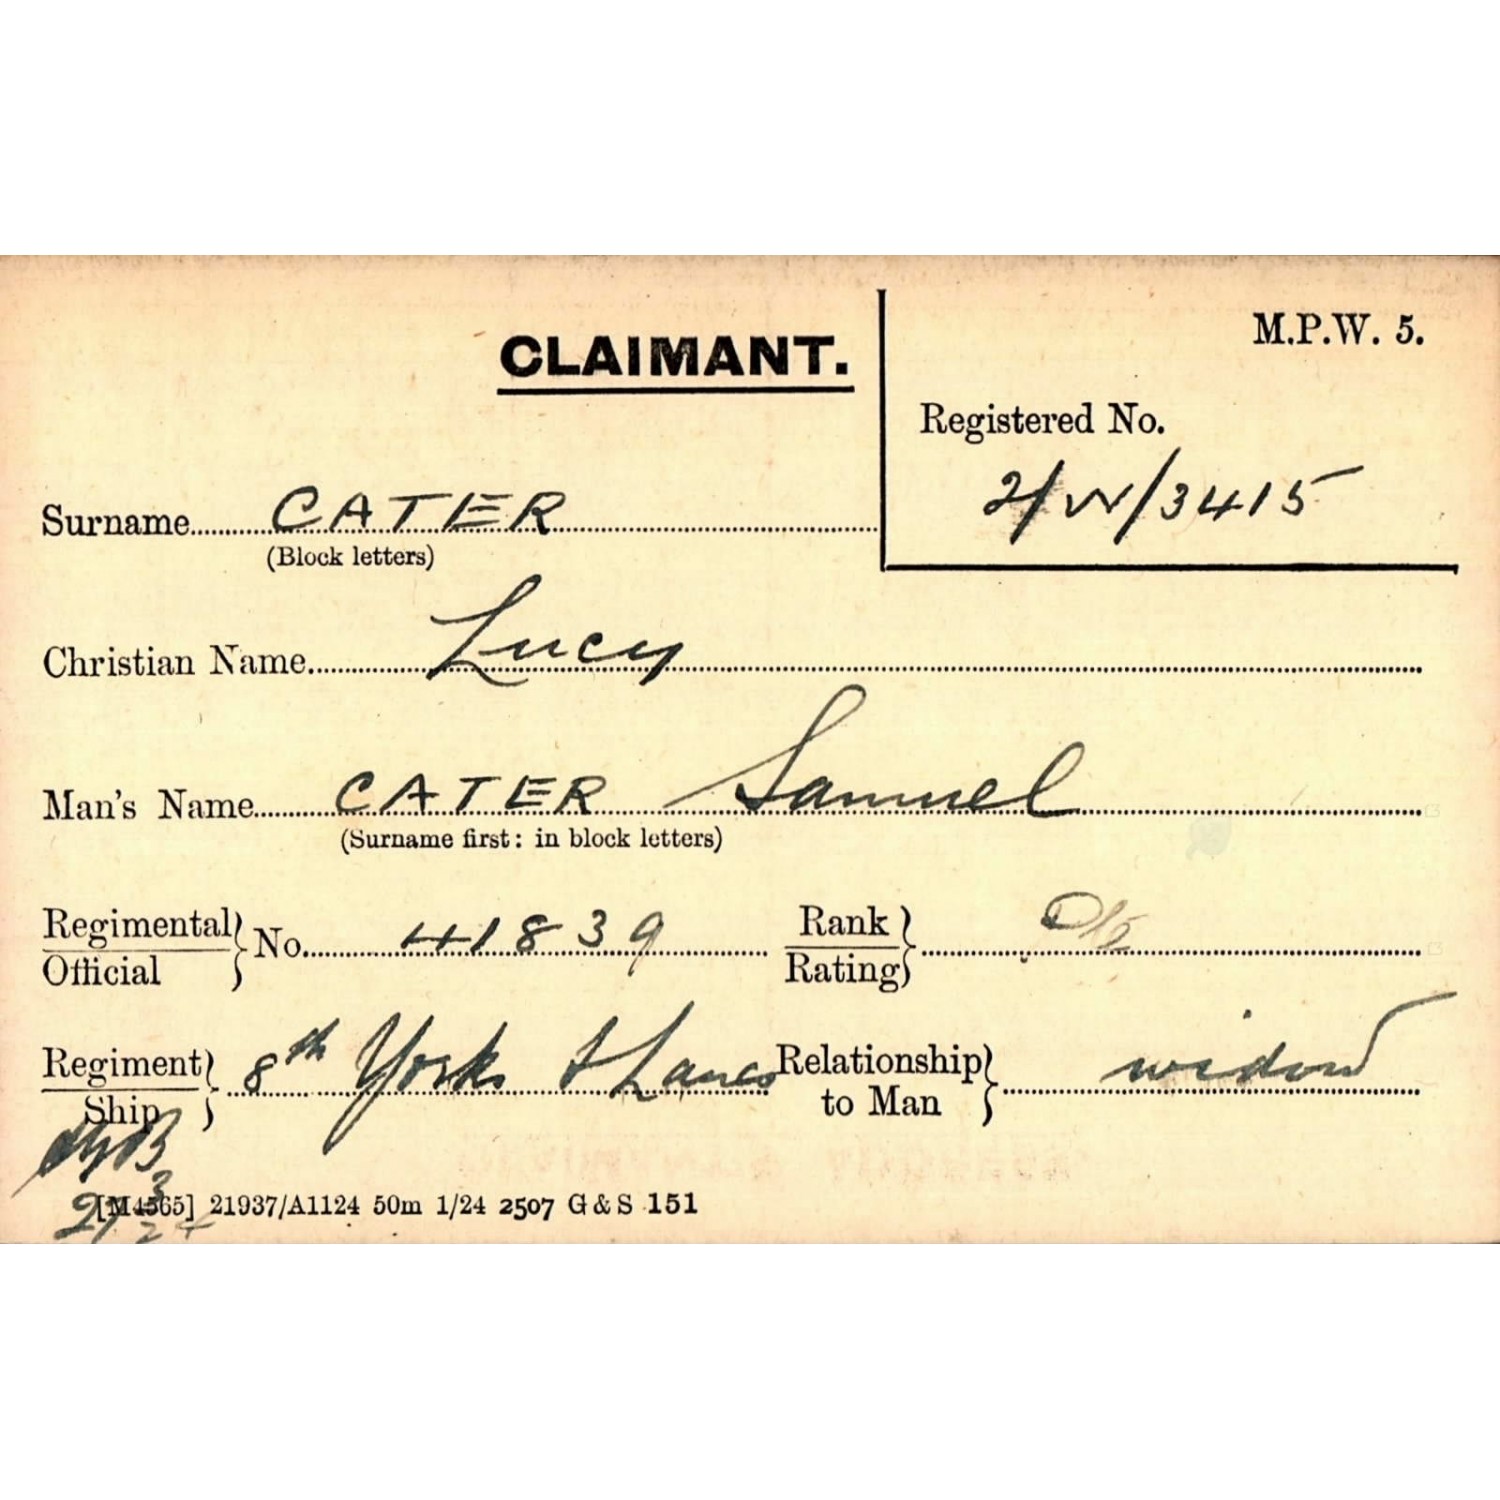 CLAIMANT.
M.P.W. 5.
Registered No.
2/W/3415
Surname CATER
(Block letters)
Christian Name Lucy
Man's Name CATER Samuel
(Surname first: in block letters)
Regimental No. 41839 Rank
Official Rating
Regiment 8th Yorks & Lancs Relationship to Man widow
Ship
[M4565] 21937/A1124 50m 1/24 2507 G & S 151